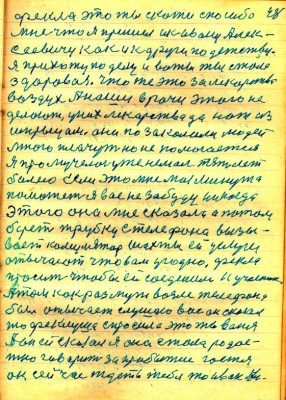 фекла это ты скоти спосибо 28
мне что я пришол ик ивану Алек-
сеевичу как и к другу по детству.
Я прихожу по делу и вот ты стала
здоровая. что те это за лекарство
воздух. А наши врачи этого не
делают, у них лекарства да нож из
шприцам. они по заковали людей
много плачут но не помогается
я про мучелася уже немал тят лет
болею если это мне мас минута
поможет я вас не забуду никогда
Этого она мне сказала а потом
берет трубку с телефона вызы-
вает комунтатор шахты ей
отвечают что вам угодно, фекла
просит чтобы ей соеденили 11 участок
А там как раз муж возле телефона
был отвечает слушаю вас он сказал
то фекла и спросила это ты ваня
А он ей сказал я она стала радос-
тно говорить за прабытие гостя
он ей счас ждеть тебя товар